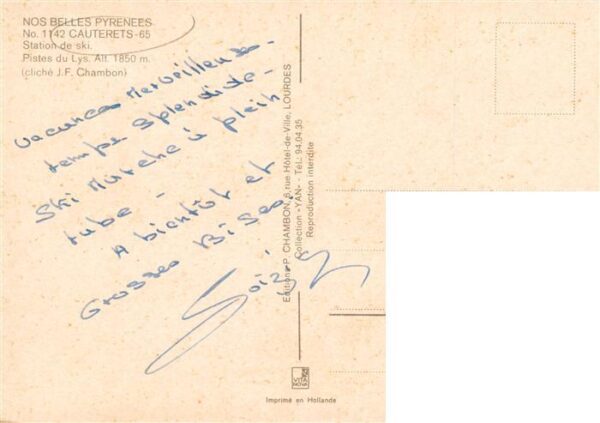 NOS BELLES PYRENEES
No. 1142 CAUTERETS-65
Station de ski.
Pistes du Lys. Alt. 1850 m.
(cliché J.F. Chambon)
Vacances Merveilleuses -
temps splendide -
Ski Marche à plein
tube -
A bientôt et
Grosses Bises.
Editions P. CHAMBON, 8, rue Hôtel-de-Ville, LOURDES
Collection «YAN» - Tél.: 94.04.35
Reproduction interdite
VITA
NOVA
Imprimé en Hollande